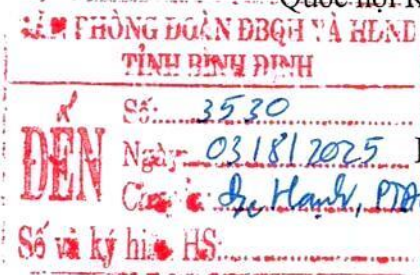 Quốc hội K
VĂN PHÒNG ĐOÀN ĐBQH VÀ HĐND
TỈNH BÌNH ĐỊNH
ĐẾN
Số: 3530
Ngày: 03/8/2025
Chuyển: Hạnh,
Số và ký hiệu HS: